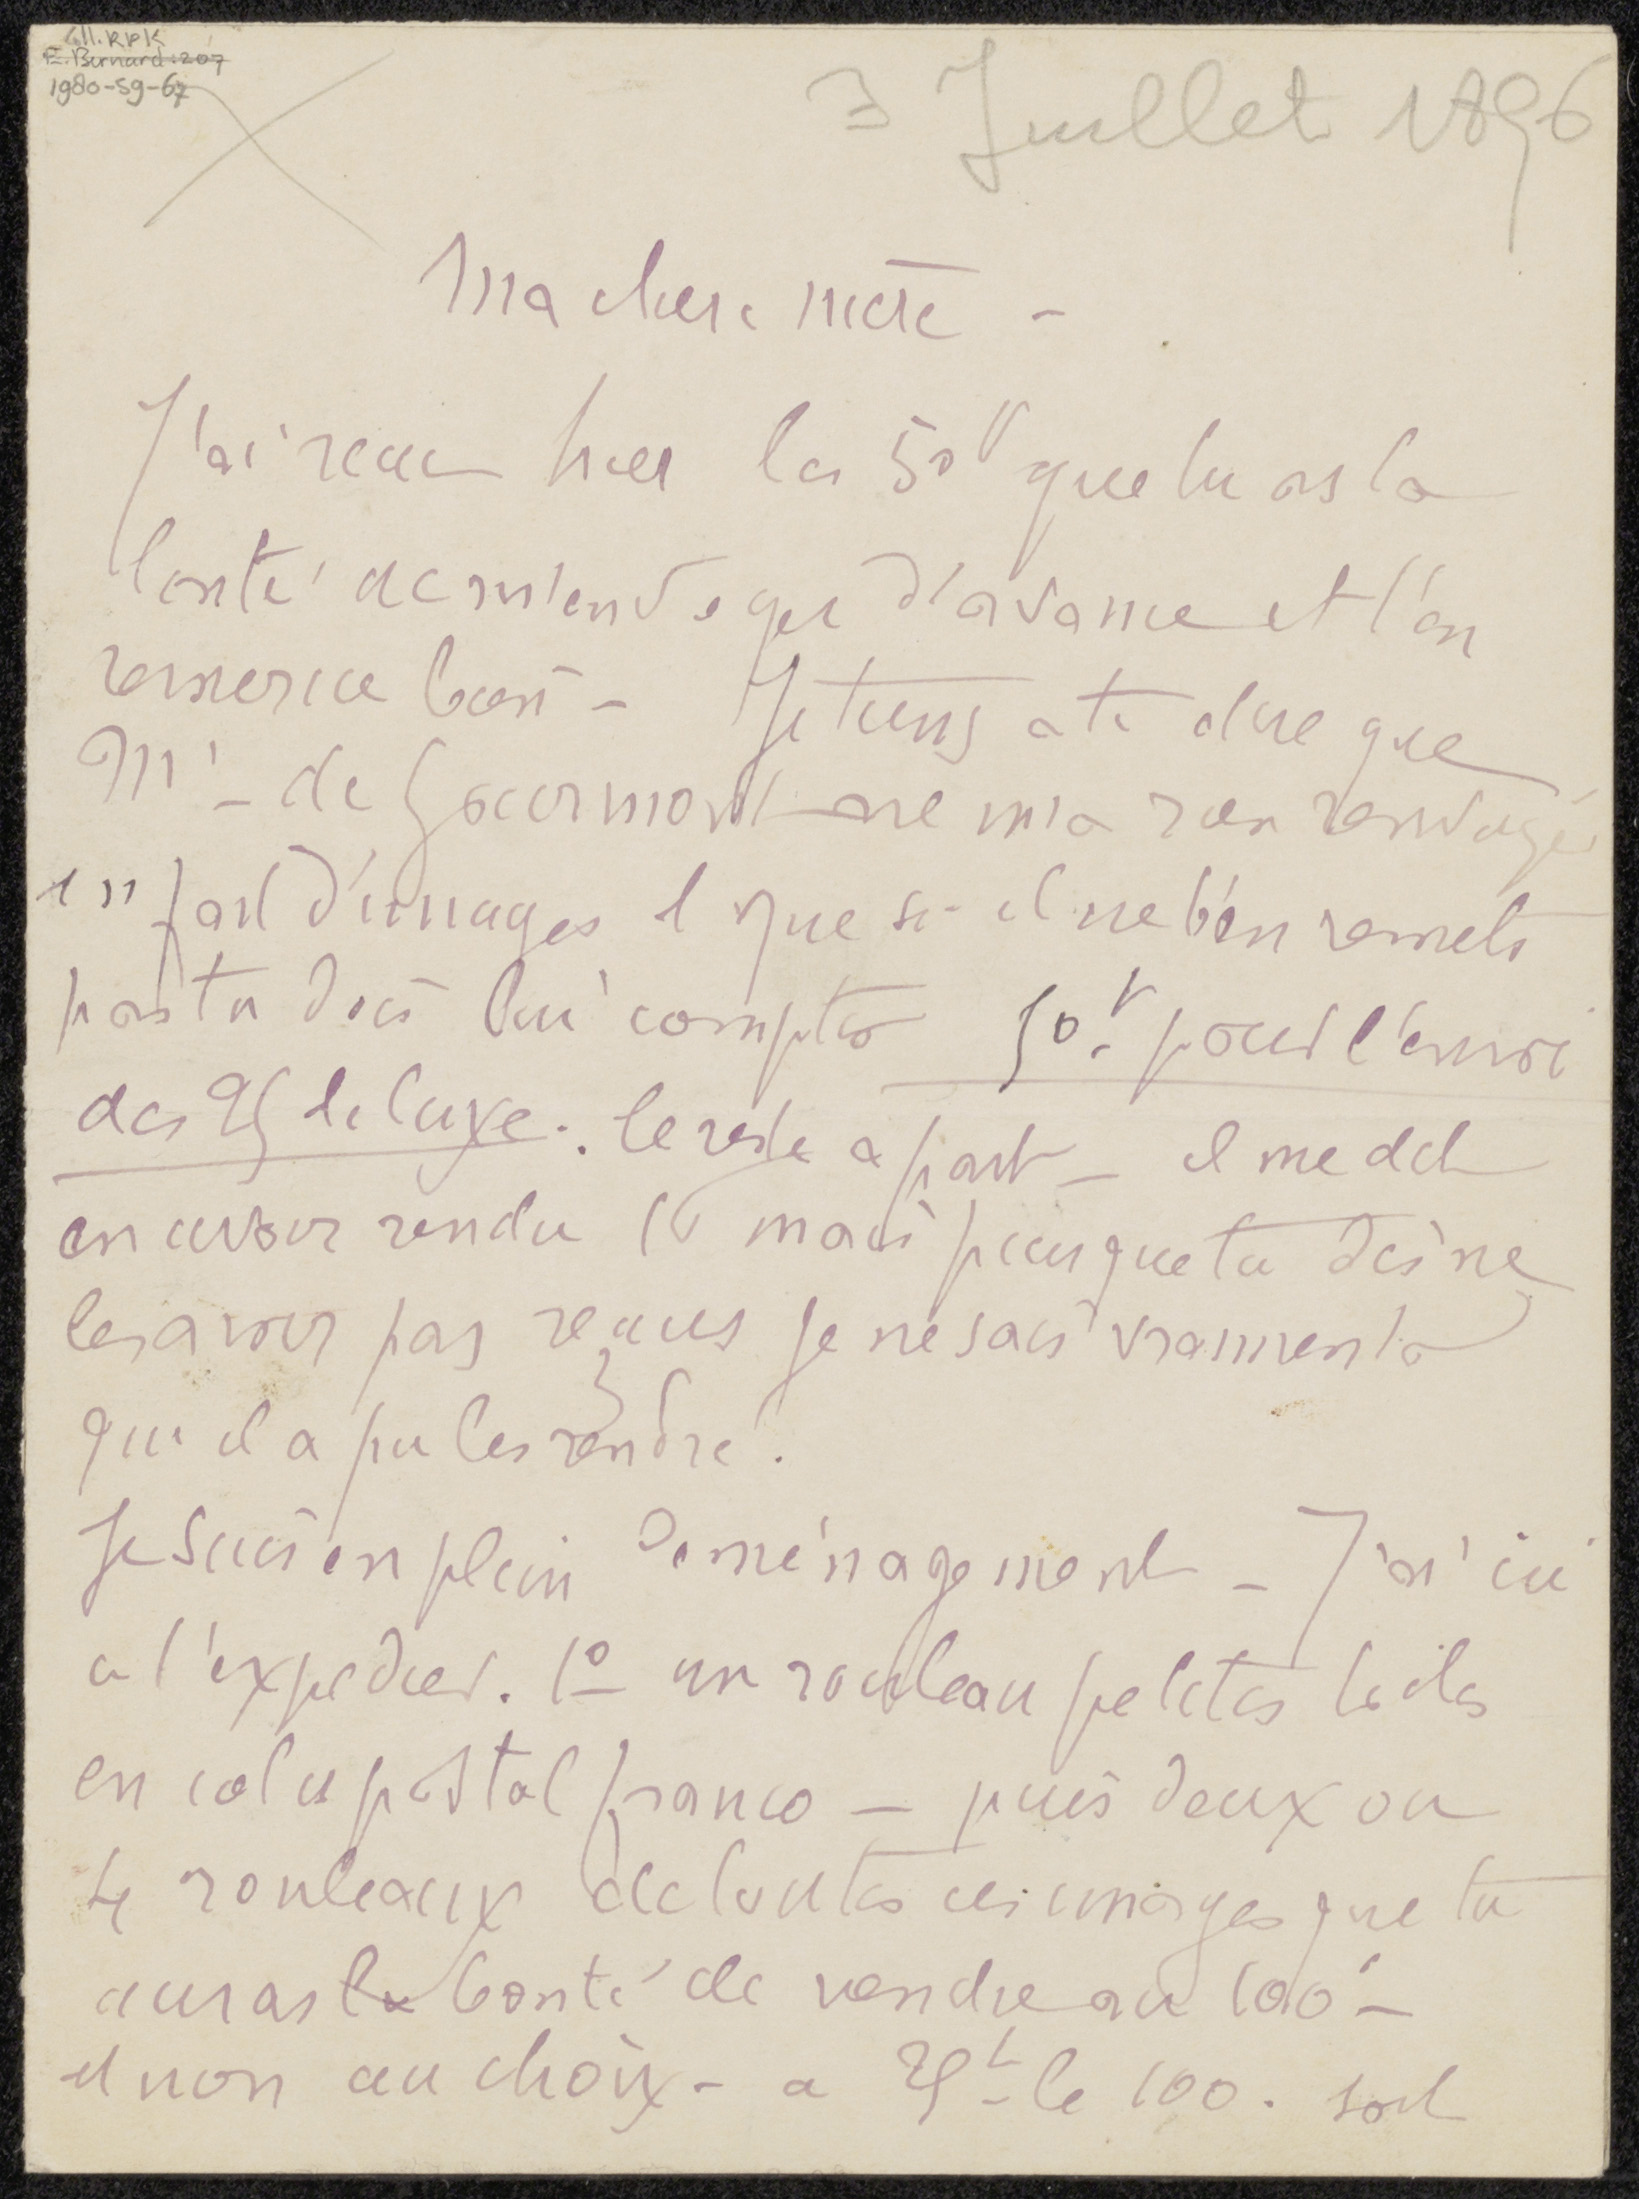 Coll. RPK
E. Bernard: 207
1980-59-67
3 Juillet 1896
Ma chere mère -
J'ai recu hier les 50f que tu as la
bonté de m'envoyer d'avance et t'en
remercie bien - Je tiens a te dire que
Mr - de Gourmont ne m'a rien renvoyé
en fait d'images et que si il ne t'en remets
pas tu dois lui compter 50f. pour l'envoi
des 25 de luxe. le reste a part - il me dit
en avoir rendu 16 mais puisque tu dis ne
les avoir pas reçues je ne sais vraiment a
qui il a pu les rendre.
Je suis en plein demenagement - J'ai ici
a t'expedier. 1o un rouleau petites toiles
en colis postal franco - puis deux ou
4 rouleaux de toutes ces images que tu
auras la bonté de vendre au 100 -
et non au choix - a 25f le 100. soit